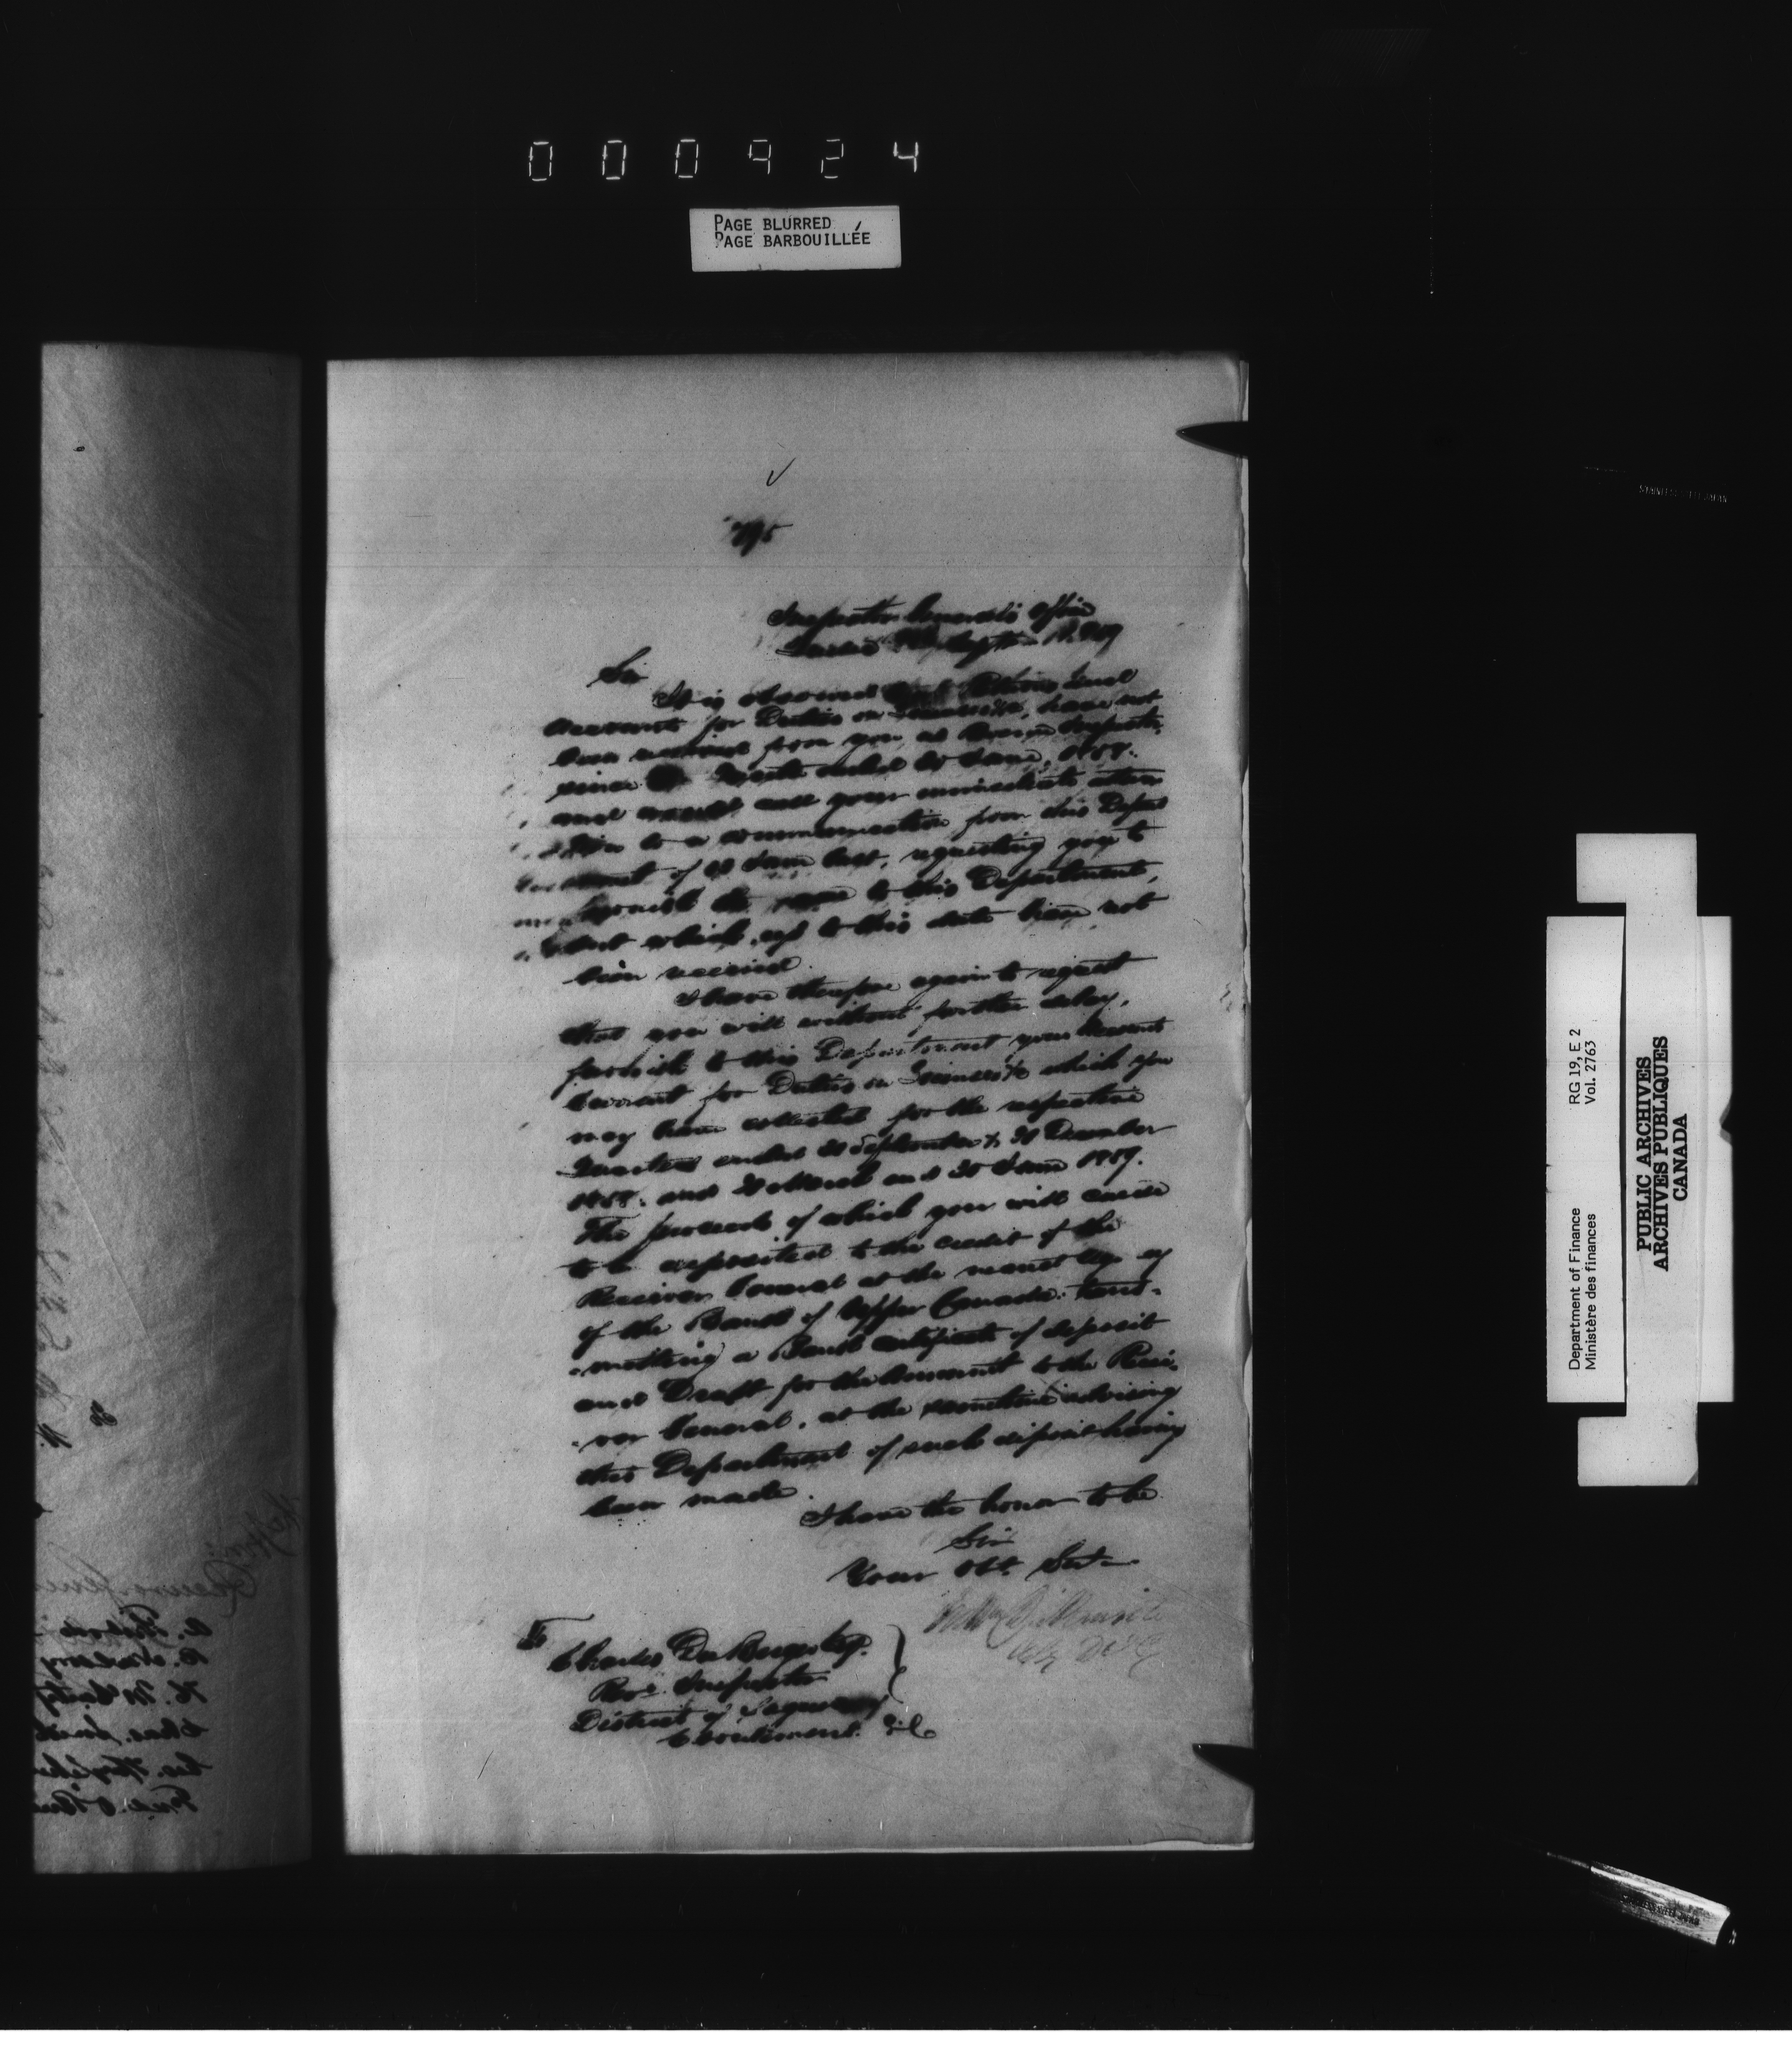 000924
PAGE BLURRED
PAGE BARBOUILLÉE
795
Inspector General's Office
Sir
It is observed that Returns and
Accounts for Duties on Licenses &c, have not
been received from you, as Revenue Inspector
since the Quarter ended 30 June, 1858.
and would call your immediate atten
-tion to a communication from this Depart
-ment of June last, requesting you to
furnish the same to this Department,
but which, up to this date have not
been received.
I have therefore again to request
that you will without further delay,
furnish to this Department your Account
Current for Duties on Licenses &c which you
may have collected for the respective
Quarters ended 30 September & 31 December
1858. and 31 March and 30 June 1859.
The proceeds of which you will cause
to be deposited to the credit of the
Receiver General at the nearest Agcy
of the Bank of Upper Canada. trans-
-mitting a Bank certificate of deposit
and Draft for the Amount to the Recei-
-ver General. at the same time advising
this Department of such deposit having
been made.
I have the honor to be
Sir
Your Obt. Sert
To
Charles Du Berger Esq.
Reve. Inspector
District of Saguenay
Eboulements. &c
Department of Finance RG 19, E 2
Ministère des finances Vol. 2763
PUBLIC ARCHIVES
ARCHIVES PUBLIQUES
CANADA